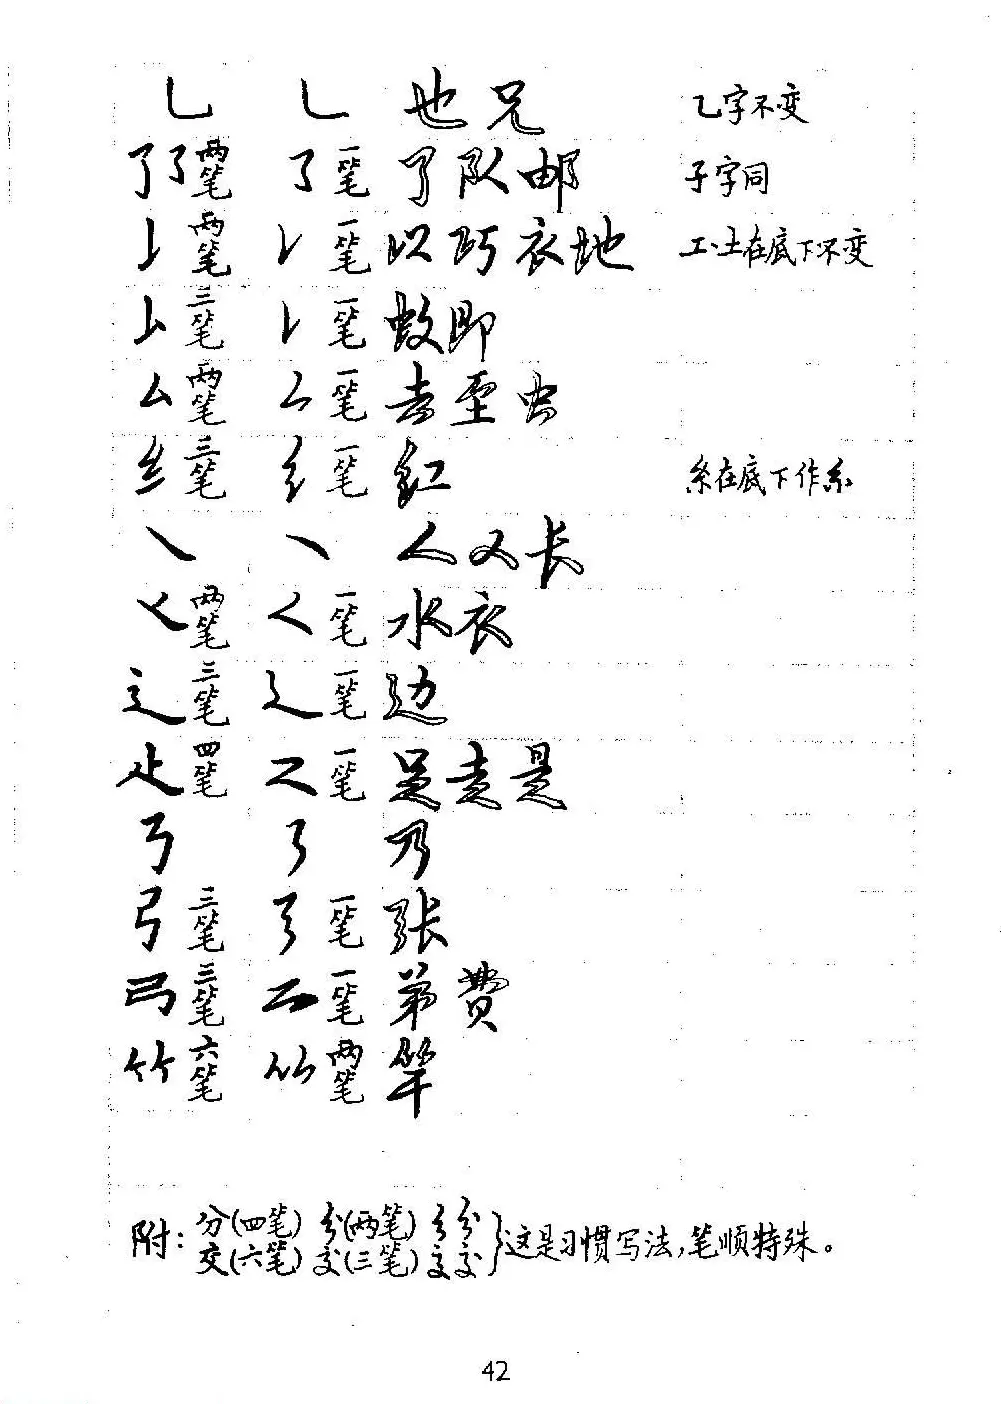 乚 乚 也兄 乙字不变
了了两笔 了一笔 了队邮 子字同
两笔 一笔 以巧衣地 工、土在底下不变
三笔 一笔 蚊即
厶两笔 ㄥ一笔 去至虫
纟三笔 一笔 红 糸在底下作糸
㇏ 丶 人又长
两笔 く一笔 水衣
辶三笔 辶一笔 边
四笔 一笔 足走是
㇉ ㇋ 乃
弓三笔 一笔 张
弓三笔 一笔 弟費
竹六笔 两笔 竿
附：分(四笔) 分(两笔) 分
交(六笔) 交(三笔) 交 } 这是习惯写法，笔顺特殊。
42